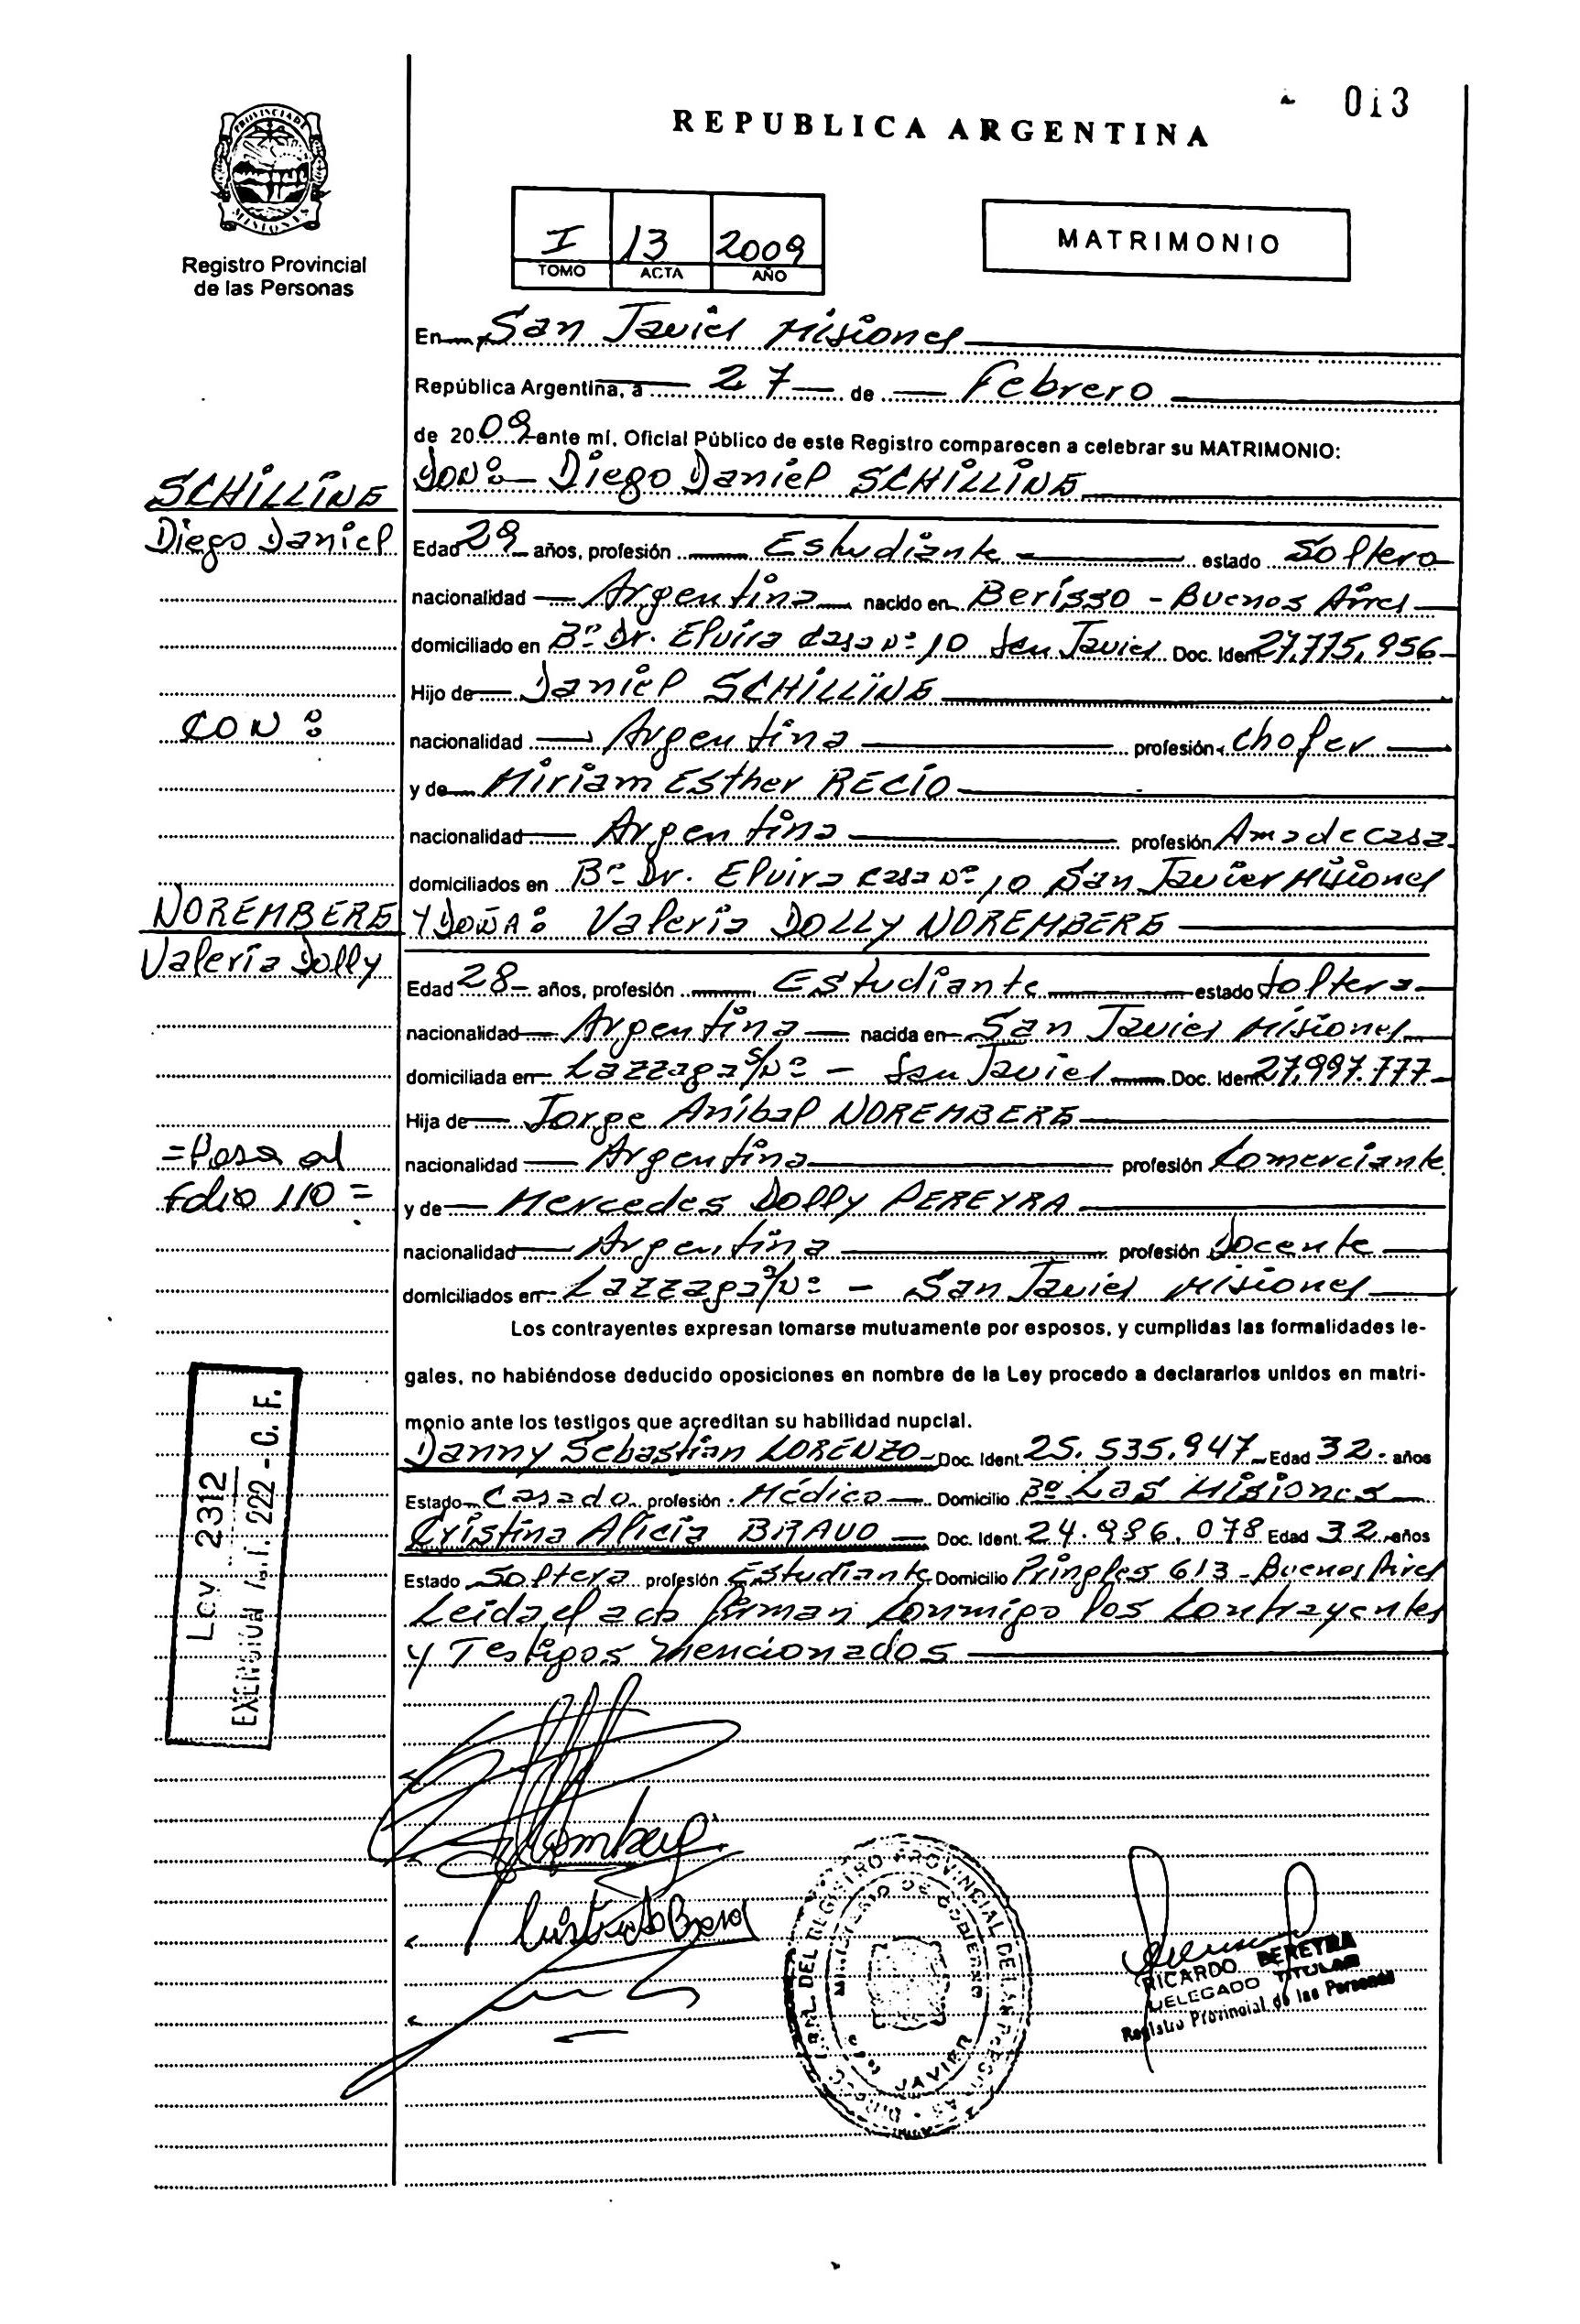 013
REPUBLICA ARGENTINA
PROVINCIA DE
MISIONES
Registro Provincial
de las Personas
I 13 2009
TOMO ACTA AÑO
MATRIMONIO
En San Javier Misiones
República Argentina, a 27 de Febrero
de 2009 ante mí, Oficial Público de este Registro comparecen a celebrar su MATRIMONIO:
SCHILLING
DON: Diego Daniel SCHILLING
Diego Daniel
Edad 29 años, profesión Estudiante estado Soltero
nacionalidad Argentina nacido en Berisso - Buenos Aires
domiciliado en Bº Dr. Elvira Casa Nº 10 San Javier Doc. Ident. 27.775.956
Hijo de Daniel SCHILLING
CON:
nacionalidad Argentina profesión chofer
y de Miriam Esther RECIO
nacionalidad Argentina profesión Ama de casa
domiciliados en Bº Dr. Elvira Casa Nº 10 San Javier Misiones
NOREMBERG
Y DOÑA: Valeria DOLLY NOREMBERG
Valeria Dolly
Edad 28 años, profesión Estudiante estado Soltera
nacionalidad Argentina nacida en San Javier Misiones
domiciliada en Lazzaga S/Nº - San Javier Doc. Ident. 27.997.777
Hija de Jorge Aníbal NOREMBERG
=Pasa al
nacionalidad Argentina profesión Comerciante
folio 110=
y de Mercedes Dolly PEREYRA
nacionalidad Argentina profesión Docente
domiciliados en Lazzaga S/Nº - San Javier Misiones
Los contrayentes expresan tomarse mutuamente por esposos, y cumplidas las formalidades le-
gales, no habiéndose deducido oposiciones en nombre de la Ley procedo a declararlos unidos en matri-
monio ante los testigos que acreditan su habilidad nupcial.
Danny Sebastián LORENZO Doc. Ident. 25.535.947 Edad 32 años
Estado Casado profesión Médico Domicilio Bº Las Misiones
Cristina Alicia BRAVO Doc. Ident. 24.986.078 Edad 32 años
Estado Soltera profesión Estudiante Domicilio Pringles 613 - Buenos Aires
Leida el acta firman conmigo los contrayentes
y Testigos mencionados
Ley 2312
EXENSION 222 - C. F.
DEL REGISTRO PROVINCIAL DE LAS PERSONAS
MINISTERIO DE GOBIERNO
JAVIER
RICARDO PEREYRA
DELEGADO TITULAR
Registro Provincial de las Personas